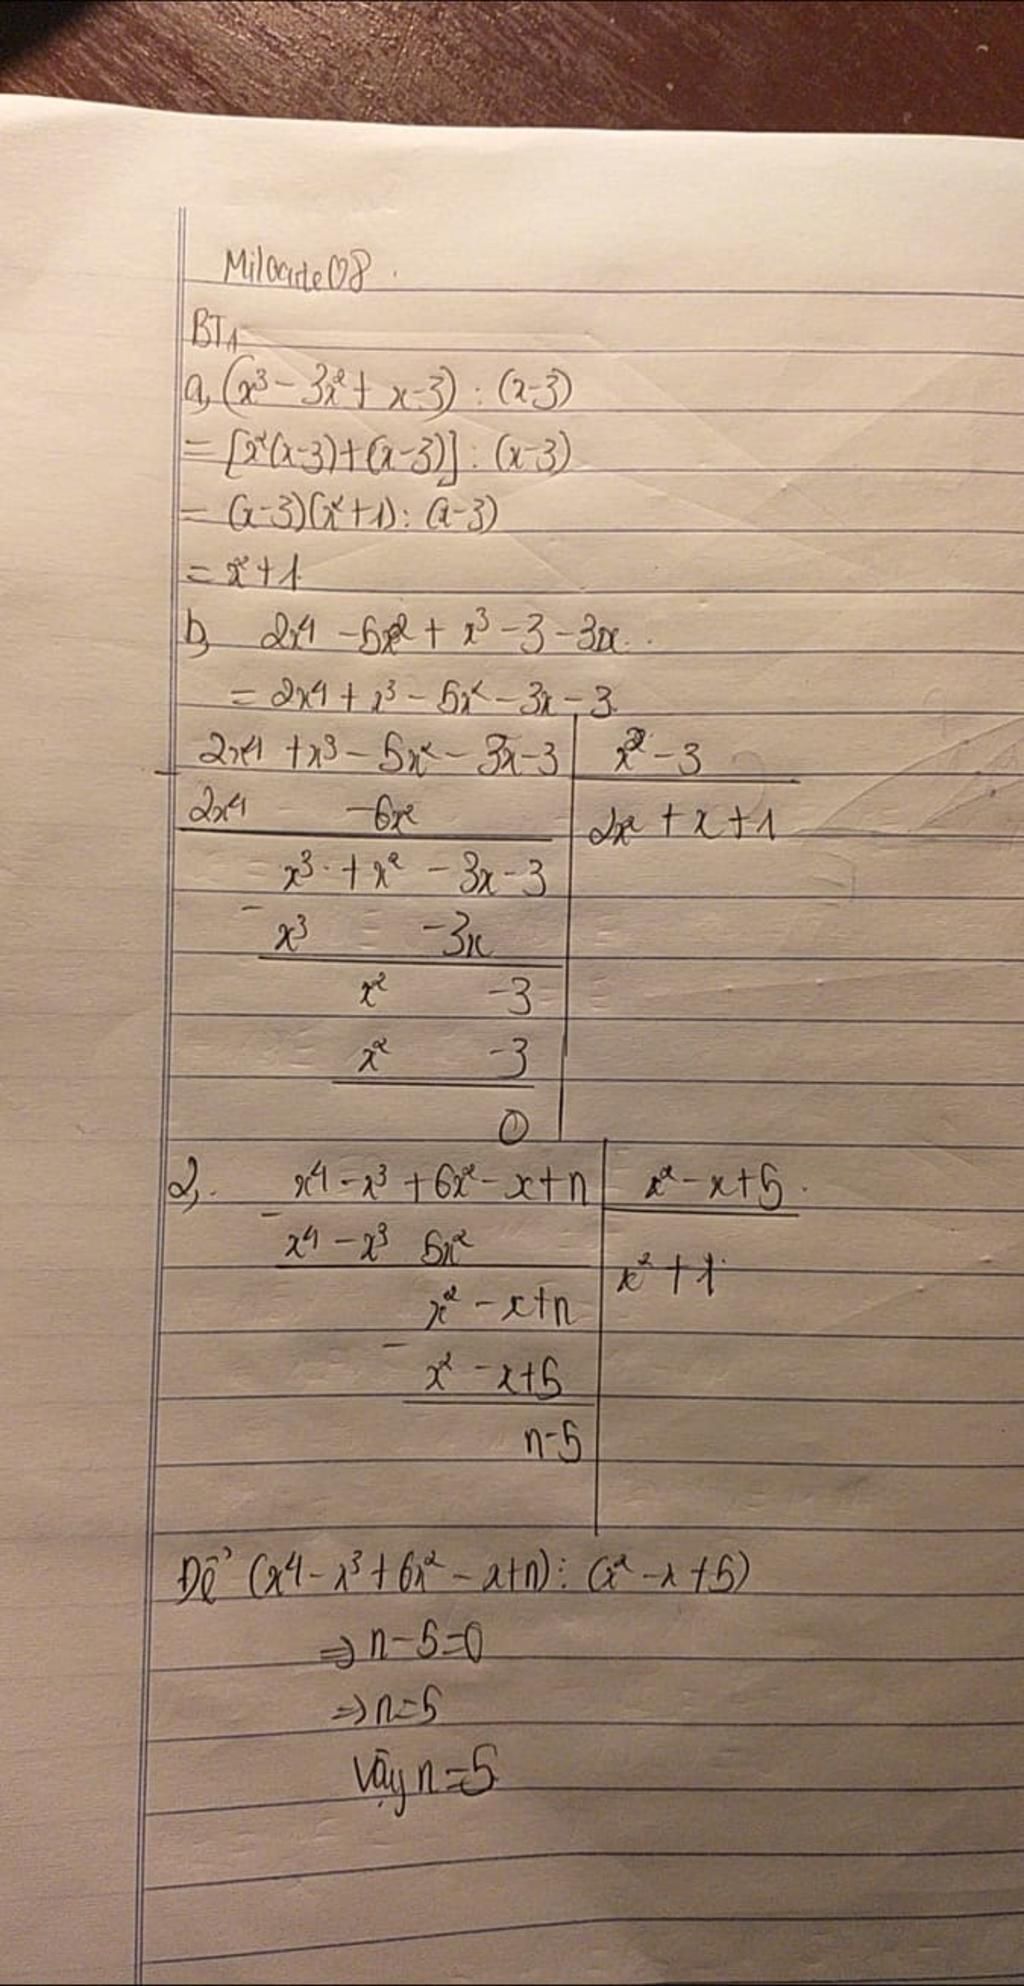 Milocute08.
BT1
a, (x³ - 3x² + x - 3) : (x-3)
= [x²(x-3)+(x-3)] : (x-3)
= (x-3)(x²+1) : (x-3)
= x²+1
b, 2x⁴ - 5x² + x³ - 3 - 3x.
= 2x⁴ + x³ - 5x² - 3x - 3
2x⁴ + x³ - 5x² - 3x - 3 | x² - 3
- 2x⁴ - 6x² | 2x² + x + 1
x³ + x² - 3x - 3
- x³ - 3x
x² - 3
x² - 3
0
2, x⁴ - x³ + 6x² - x + n | x² - x + 5
- x⁴ - x³ 5x² | x² + 1
x² - x + n
- x² - x + 5
n - 5
Để (x⁴ - x³ + 6x² - x + n) : (x² - x + 5)
=> n - 5 = 0
=> n = 5
Vậy n = 5